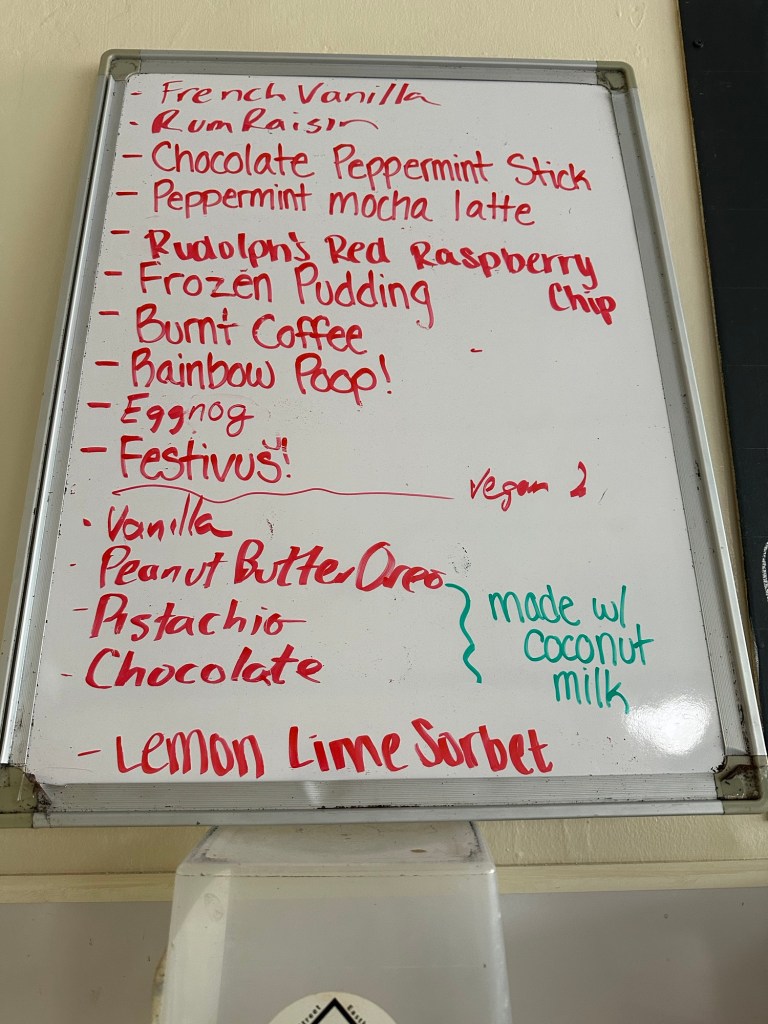 - French Vanilla
- Rum Raisin
- Chocolate Peppermint Stick
- Peppermint mocha latte
- Rudolph's Red Raspberry
Chip
- Frozen Pudding
- Burnt Coffee
- Rainbow Poop!
- Eggnog
- Festivus!
Vegan
- Vanilla
- Peanut Butter Oreo
- Pistachio
- Chocolate
made w/
coconut
milk
- Lemon Lime Sorbet